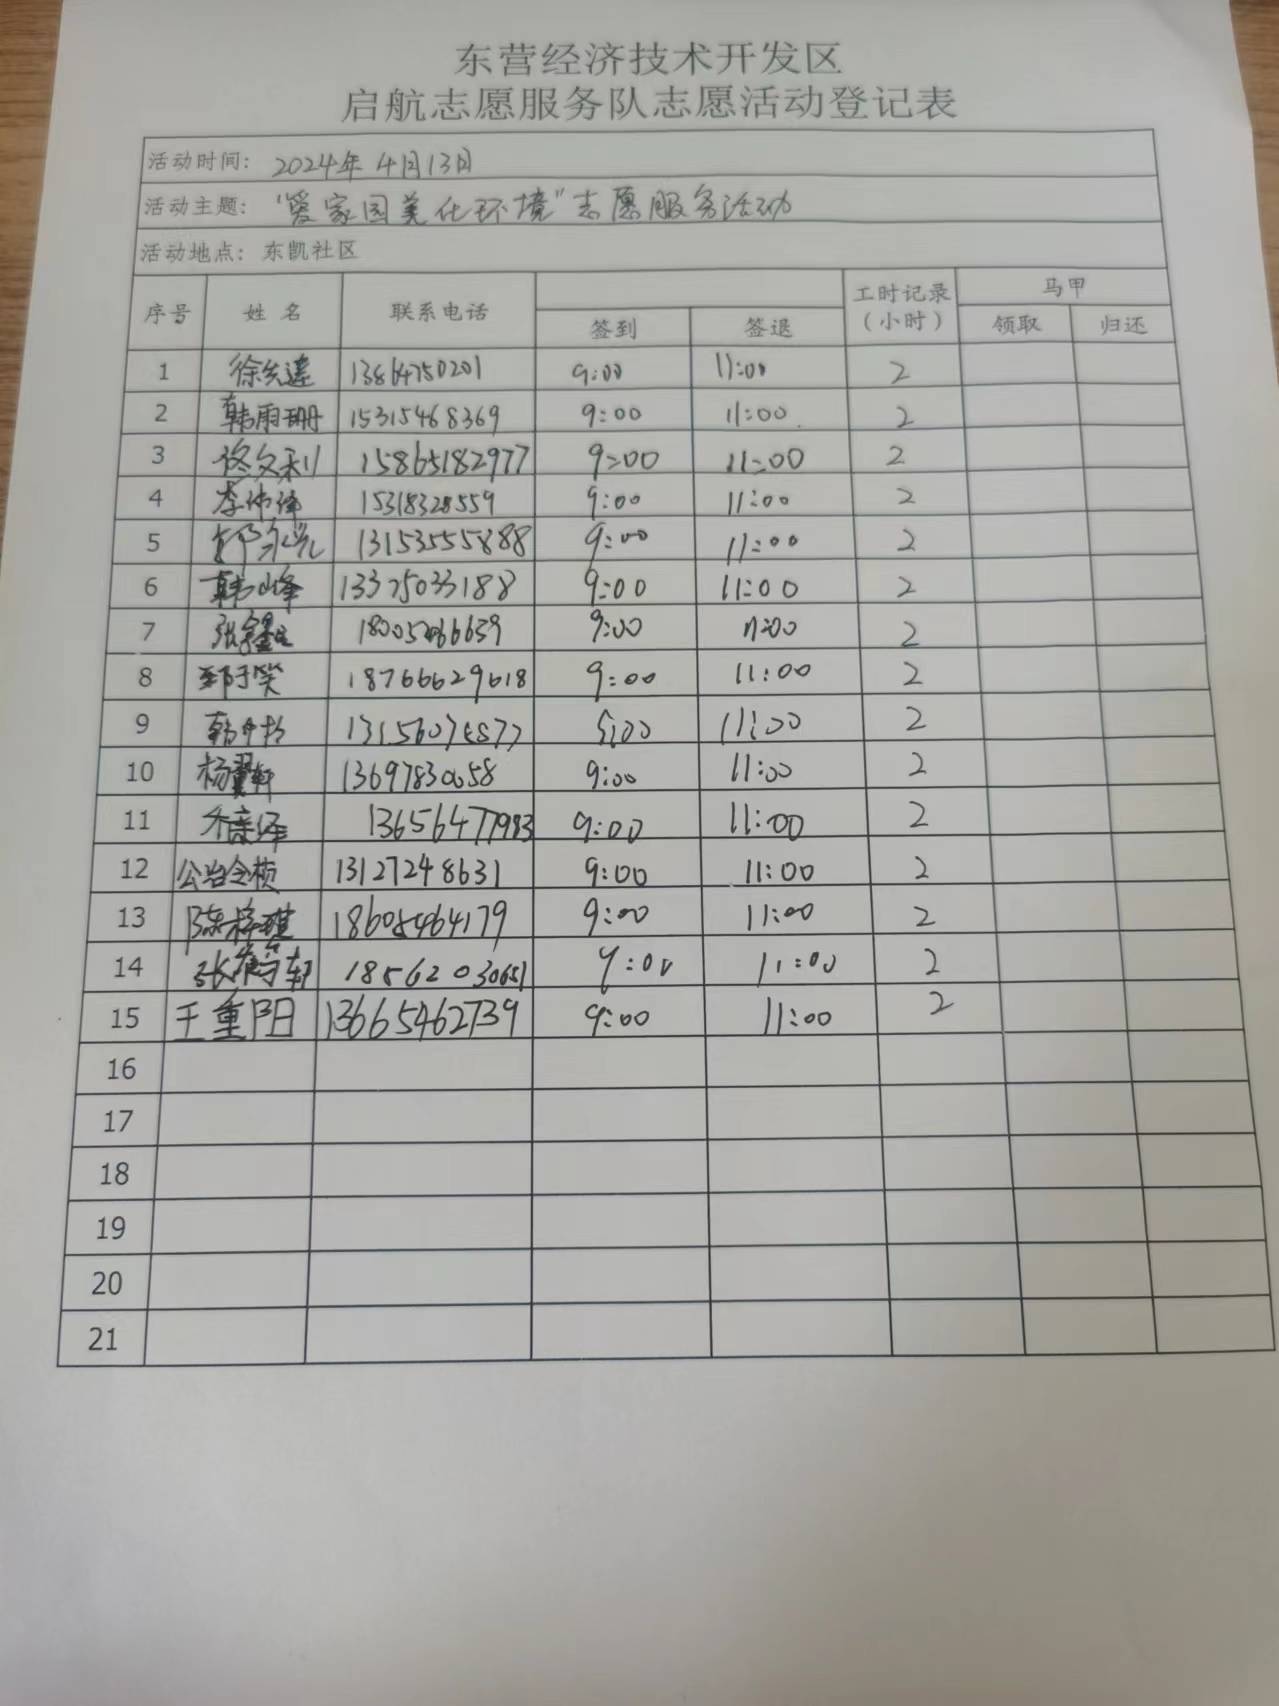 东营经济技术开发区
启航志愿服务队志愿活动登记表
活动时间: 2024年4月13日
活动主题: "爱家园美化环境"志愿服务活动
活动地点: 东凯社区
序号 姓名 联系电话 签到 签退 工时记录(小时) 马甲 领取 归还
1 13864750201 9:00 11:00 2
2 韩雨珊 15315468369 9:00 11:00 2
3 15865182977 9:00 11:00 2
4 15318328559 9:00 11:00 2
5 13153555888 9:00 11:00 2
6 韩山峰 13375033188 9:00 11:00 2
7 9:00 11:00 2
8 18766629618 9:00 11:00 2
9 11:00 2
10 13697830058 9:00 11:00 2
11 13656477983 9:00 11:00 2
12 13127248631 9:00 11:00 2
13 陈梓琪 18605464179 9:00 11:00 2
14 18562030651 9:00 11:00 2
15 王重阳 13665462739 9:00 11:00 2
16
17
18
19
20
21